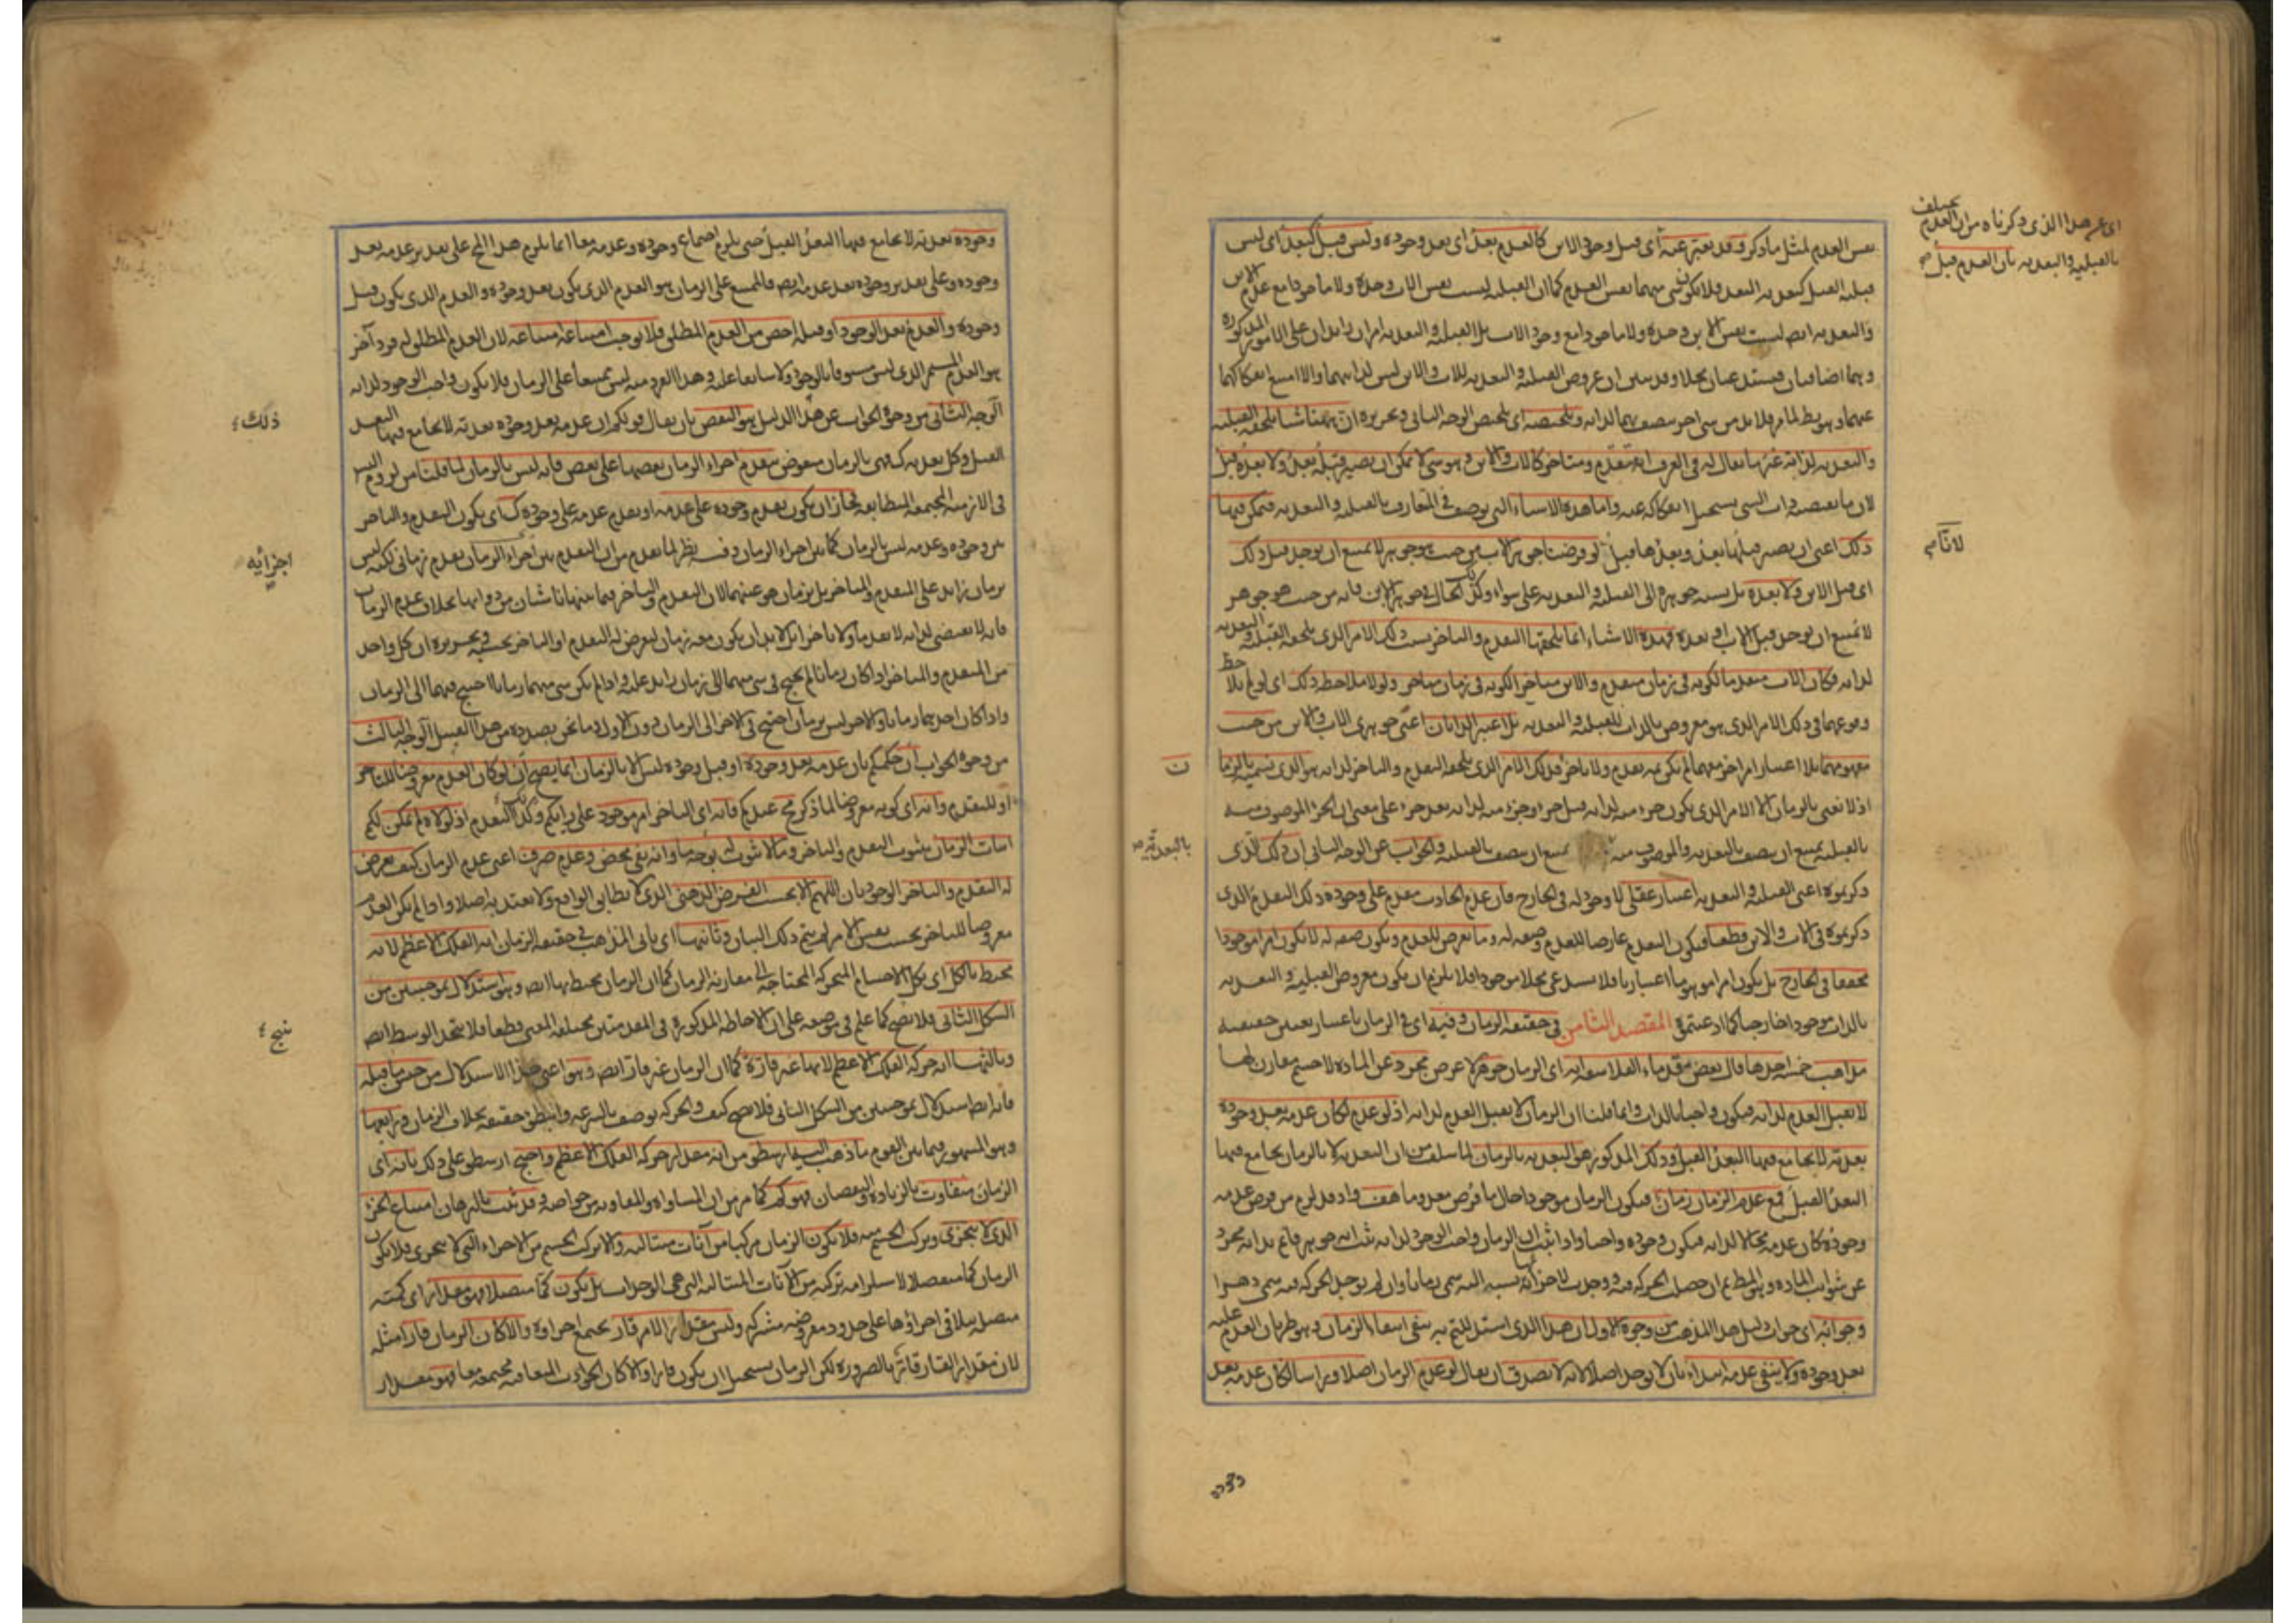 اى عن هذا الذى ذكرناه من ان العدم يختلف
بالقبلية والبعدية بان العدم قبل
نفس العدم لمثل ما ذكر وقد يعبر عنه اى قبل وجود الابن كالعدم بعد اى بعد وجوده وليس قبل كبعد اى ليس
قبلية القبل كبعدية البعد فلا يكون شئ منهما نفس العدم كما ان القبلية ليست نفس الاب وحده ولا ماخوذا مع عدم الابن
والبعدية ايضا ليست نفس الابن وحده ولا ماخوذا مع وجود الاب بل القبلية والبعدية امران زايدان على الامور المذكورة
وهما اضافيتان فيستدعيان محلا وقد سبق ان عروض القبلية والبعدية للاب والابن ليس لذاتيهما والا امتنع انفكاكهما
عنهما وهو بط لما مر فلا بد من شئ اخر متصف بهما لذاته وتلخيصه اى تلخيص الوجه الثانى وتحريره ان ههنا شيئا يلحقه القبلية
والبعدية لذاته غير ما يقال له فى العرف انه متقدم ومتاخر كالاب والابن وهو شئ لا يمكن ان يصير قبله بعد ولا بعده قبل
لان ما يقتضيه ذات الشئ يستحيل انفكاكه عنه واما هذه الاشياء التى توصف فى المتعارف بالقبلية والبعدية فيمكن فيها
ذلك اعنى ان يصير قبلها بعد وبعدها قبل لو فرضنا جوهر الاب من حيث هو جوهر لا يمتنع ان يوجد قبل ذلك
لانا
اى قبل الابن ولا بعده بل نسبة جوهره الى القبلية والبعدية على سواء وكذا الحال فى جوهر الابن فانه من حيث هو جوهر
لا يمتنع ان يوجد قبل الاب او بعده فهذه الاشياء انما يلحقها التقدم والتاخر بسبب ذلك الامر الذى يلحقه القبلية والبعدية
لذاته فكان الاب متقدما لكونه فى زمان متقدم والابن متاخرا لكونه فى زمان متاخر ولولا ملاحظة ذلك اى لو لم يلاحظ
وقوعهما فى ذلك الامر الذى هو معروض بالذات للقبلية والبعدية بل اعتبر الذاتان اعنى جوهرى الاب والابن من حيث
مفهومهما بلا اعتبار امر اخر معهما لم يكن ثمه تقدم ولا تاخر فذلك الامر الذى يلحقه التقدم والتاخر لذاته هو الذى نسميه بالزمان
اذ لا نعنى بالزمان الا الامر الذى يكون جزء منه لذاته قبل جزء وجزء منه لذاته بعد جزء على معنى ان الجزء الموصوف منه
بالقبلية يمتنع ان يتصف بالبعدية والموصوف منه يمتنع ان يتصف بالقبلية والجواب عن الوجه الثانى ان ذلك الذى
بالبعدية
ذكرتموه اعنى القبلية والبعدية اعتبار عقلى لا وجود له فى الخارج فان عدم الحادث مقدم على وجوده ذلك التقدم الذى
ذكرتموه فى الاب والابن قطعا فيكون التقدم عارضا للعدم وصفة له وما يعرض للعدم ويكون صفة له لا يكون امرا موجودا
محققا فى الخارج بل يكون امرا موهوما اعتباريا فلا يستدعى محلا موجودا فلا يلزم ان يكون معروض القبلية والبعدية
بالذات موجودا خارجيا كما ادعيتم المقصد الثامن فى حقيقة الزمان وفيه اى فى الزمان باعتبار تعيين حقيقته
مذاهب خمسة احدها قال بعض قدماء الفلاسفة انه اى الزمان جوهر لا عرض مجرد عن المادة لا جسم مقارن لها
لا يقبل العدم لذاته فيكون واجبا بالذات وانما قلنا ان الزمان لا يقبل العدم لذاته اذ لو عدم لكان عدمه بعد وجوده
بعدية لا يجامع فيها البعد القبل وذلك المذكور هو البعدية بالزمان لما سلف من ان البعدية لا بالزمان يجامع فيها
البعد القبل فمع عدم الزمان زمان فيكون الزمان موجودا حال ما فرض معدوما هف واذ قد لزم من فرض عدمه
وجوده كان عدمه محالا لذاته فيكون وجوده واجبا واذا ثبت ان الزمان واجب الوجود لذاته ثبت انه جوهر قائم بذاته مجرد
عن شوائب المادة وهو المط ثم ان حصلت الحركة فيه ووجدت لاجزائها نسبة اليه سمى زمانا وان لم يوجد الحركة فيه سمى دهرا
وجوابه اى جواب دليل هذا المذهب من وجوه الاول ان هذا الذى استدللتم به ينفى انتفاء الزمان وهو طريان العدم عليه
بعد وجوده ولا ينفى عدمه ابتداء بان لا يوجد اصلا لانه لا يصدق ان يقال لو عدم الزمان اصلا وراسا لكان عدمه بعد
وجوده
وجوده بعدية لا يجامع فيها البعد القبل حتى يلزم اجتماع وجوده وعدمه معا انما يلزم هذا المحال على تقدير عدمه بعد
وجوده وعلى تقدير وجوده بعد عدمه ايضا فالممتنع على الزمان هو العدم الذى يكون بعد وجوده والعدم الذى يكون قبل
وجوده والعدم بعد الوجود او قبله اخص من العدم المطلق فلا يوجب امتناعه امتناعه لان العدم المطلق له فرد آخر
هو العدم المستمر الذى ليس مسبوقا بالوجود ولا سابقا عليه وهذا الفرد منه ليس ممتنعا على الزمان فلا يكون واجب الوجود لذاته
الوجه الثانى من وجوه الجواب عن هذا الدليل هو النقض بان يقال قولكم ان عدمه بعد وجوده بعدية لا يجامع فيها البعد
القبل وكل بعدية كذلك فهى بالزمان منقوض بتقدم اجزاء الزمان بعضها على بعض فانه ليس بالزمان لما قلنا من لزوم التسلسل
ذلك
فى الازمنة المجتمعة المتطابقة فجاز ان يكون تقدم وجوده على عدمه او تقدم عدمه على وجوده كذلك اى يكون التقدم والتاخر
بين وجوده وعدمه ليس بالزمان كما بين اجزاء الزمان وفيه نظر لما تقدم من ان التقدم بين اجزاء الزمان تقدم زمانى لكنه ليس
اجزائه
بزمان زايد على المتقدم والمتاخر بل بزمان هو عينهما لان التقدم والتاخر فيما بينها ناشيان من ذواتها بخلاف عدم الزمان
فانه لا يقتضى لذاته لا تقدما ولا تاخرا بل لا بد ان يكون معه زمان ليعرض له التقدم او التاخر بحسبه وتحريره ان كل واحد
من المتقدم والمتاخر اذا كان زمانا لم يحتج فى شئ منهما الى زمان زايد عليه واذا لم يكن شئ منهما زمانا احتيج فيهما الى الزمان
واذا كان احدهما زمانا والاخر ليس بزمان احتيج فى الاخر الى الزمان دون الاول وما نحن بصدده من هذا القبيل الوجه الثالث
من وجوه الجواب ان حكمكم بان عدمه بعد وجوده او قبل وجوده ليس الا بالزمان انما يصح ان لو كان العدم معروضا للتاخر
او للتقدم وانه اى كونه معروضا لما ذكر مح عندكم فانه اى التاخر امر موجود على رايكم وكذا التقدم اذ لولاه لم يمكن لكم
اثبات الزمان بثبوت التقدم والتاخر وما لا ثبوت له بوجه ما وانه نفى محض وعدم صرف اعنى عدم الزمان كيف يعرض
له التقدم والتاخر الوجوديان اللهم الا بحسب الفرض الذهنى الذى لا يطابق الواقع ولا يعتد به اصلا واذا لم يكن العدم
معروضا للتاخر بحسب نفس الامر لم يتم ذلك البيان وثانيها اى ثانى المذاهب فى حقيقة الزمان انه الفلك الاعظم لانه
محيط بالكل اى بكل الاجسام المتحركة المحتاجة الى مقارنة الزمان كما ان الزمان محيط بها ايضا وهو استدلال بموجبتين من
الشكل الثانى فلا ينتج كما علم فى موضعه على ان الاحاطة المذكورة فى المقدمتين مختلفة المعنى قطعا فلا يتحد الوسط ايضا
ينتج
وثالثها انه حركة الفلك الاعظم لانها غير قارة كما ان الزمان غير قار ايضا وهو اعنى هذا الاستدلال من جنس ما قبله
فانه ايضا استدلال بموجبتين من الشكل الثانى فلا يصح كيف والحركة توصف بالسرعة والبطؤ حقيقة بخلاف الزمان ورابعها
وهو المشهور فيما بين القوم ما ذهب اليه ارسطو من انه مقدار حركة الفلك الاعظم واحتج ارسطو على ذلك بانه اى
الزمان متفاوت بالزيادة والنقصان فهو كم كما مر من ان المساواة والمفاوتة من خواصه وقد ثبت بالبرهان امتناع الجزء
الذى لا يتجزى وتركب الجسم منه فلا يكون الزمان مركبا من آنات متتالية والا تركب الجسم من الاجزاء التى لا تتجزى فلا يكون
الزمان كما منفصلا لاستلزامه تركبه من الآنات المتتالية التى هى الوحدات بل يكون كما متصلا فهو مقدار اى كمية
متصلة يتلاقى اجزاؤها على حدود مفروضة مشتركة وليس مقدارا لامر قار يجتمع اجزاؤه والا كان الزمان قارا مثله
لان مقدار القار قار بالضرورة لكن الزمان يستحيل ان يكون قارا والا كان الحوادث المتعاقبة مجتمعة معا فهو مقدار